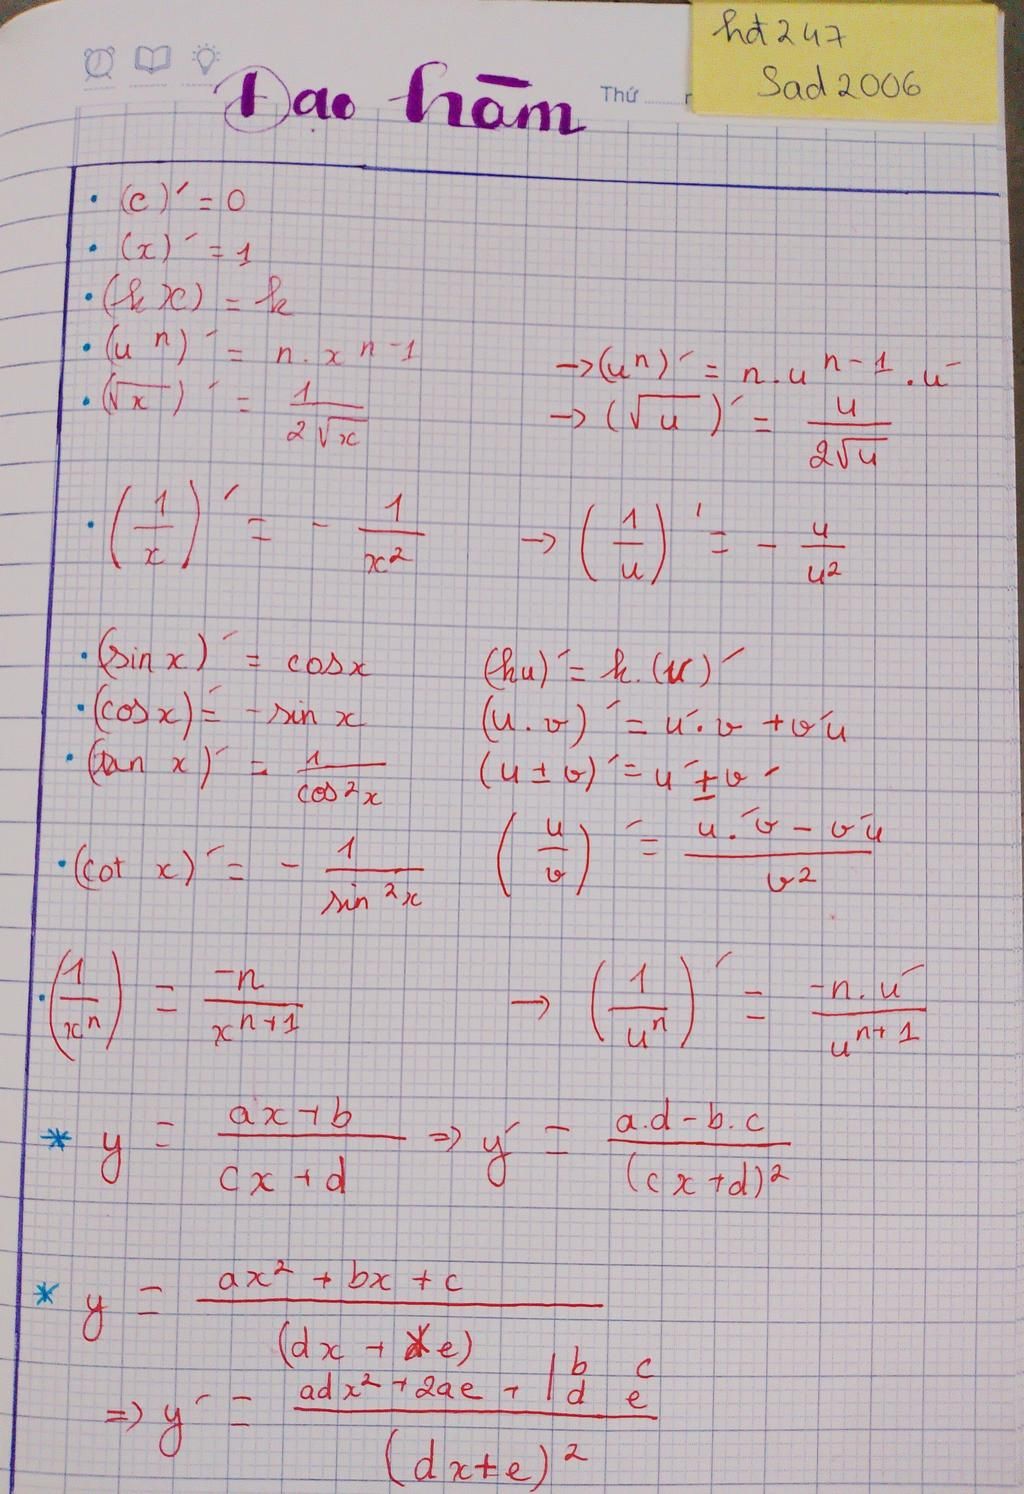 hđ247
Sad2006
Thứ
Đạo hàm
• (c)' = 0
• (x)' = 1
• (kx) = k
• (uⁿ)' = n.xⁿ⁻¹ → (uⁿ)' = n.uⁿ⁻¹.u'
• (√x)' = 1/(2√x) → (√u)' = u/(2√u)
• (1/x)' = - 1/x² → (1/u)' = - u/u²
• (sin x)' = cosx (ku)' = k.(u)'
• (cosx)' = -sin x (u.v)' = u'.v + v'u
• (tan x)' = 1/cos²x (u ± v)' = u' ± v'
• (cot x)' = - 1/sin²x (u/v)' = (u.'v - v'u)/v²
• (1/xⁿ) = -n/xⁿ⁺¹ → (1/uⁿ)' = -n.u'/uⁿ⁺¹
* y = (ax+b)/(cx+d) ⇒ y' = (a.d-b.c)/(cx+d)²
* y = (ax² + bx + c)/(dx + e)
⇒ y' = (adx² + 2ae + |b c d e)/(dx+e)²